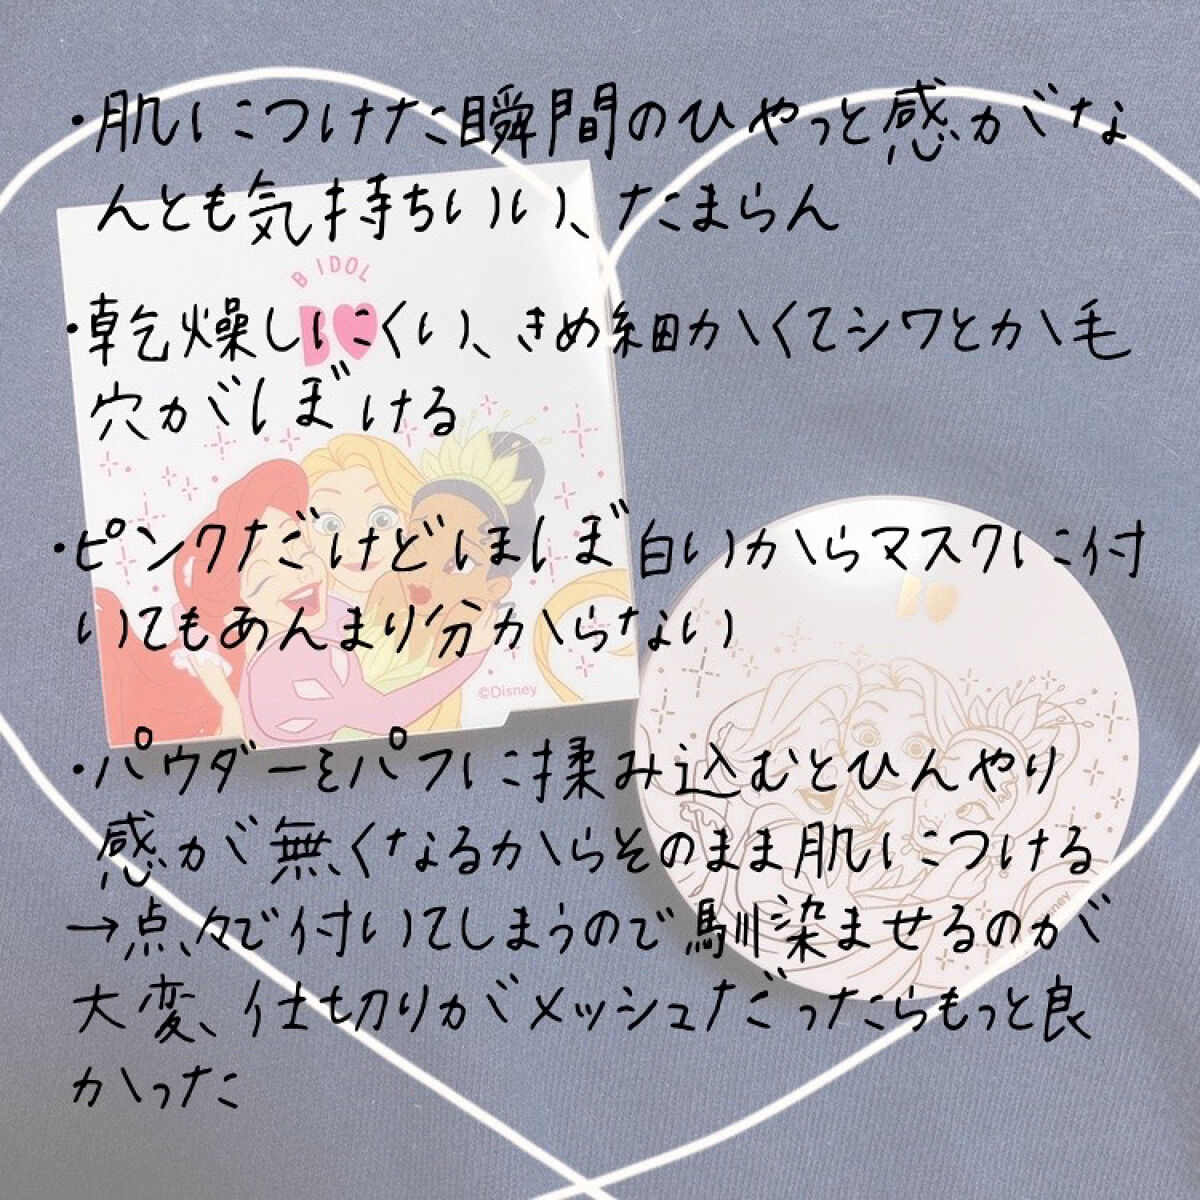 ・肌につけた瞬間のひやっと感がな
んとも気持ちいい、たまらん
B IDOL
B
・乾燥しにくい、きめ細かくてシワとか毛
穴がぼける
・ピンクだけどほぼ白いからマスクに付
いてもあんまり分からない
©Disney
・パウダーをパフに揉み込むとひんやり
感が無くなるからそのまま肌につける
→点々で付いてしまうので馴染ませるのが
大変、仕切りがメッシュだったらもっと良
かった
Disney